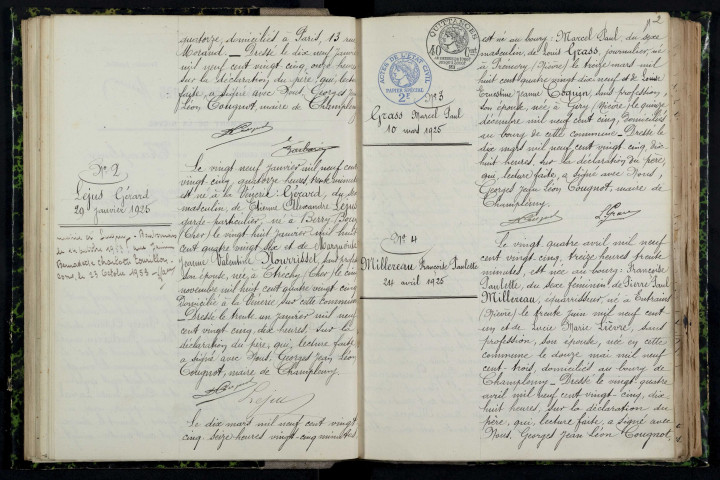 quatorze, domiciliés à Paris, 13 rue
Morand _ Dressé le dix neuf janvier
mil neuf cent vingt cinq, onze heures
sur la déclaration du père qui, lecture
faite, a signé avec Nous, Georges Jean
Léon Cougnot, maire de Champlemy
N° 2
Lejus Gérard
29 janvier 1925
Le vingt neuf janvier mil neuf cent
vingt cinq, quatorze heures trente minutes
est né à la Vénerie : Gérard, du sexe
masculin, de Etienne Alexandre Lejus
garde particulier, né à Berry-Bouy
(Cher) le vingt huit janvier mil huit
cent quatre vingt six et de Marguerite
Jeanne Valentine Nourrisset, sans profes
son épouse, née à (Cher) le cinq
novembre mil huit cent quatre vingt cinq
Domicilié à la Vénerie, sur cette commune
_ Dressé le trente un janvier mil neuf
cent vingt cinq, dix heures, sur la
déclaration du père, qui, lecture faite
a signé avec Nous, Georges Jean Léon
Cougnot, maire de Champlemy.
Lejus
Le dix mars mil neuf cent vingt
cinq seize heures vingt-cinq minutes
2
QUITTANCES
40
ACTES DE L'ÉTAT CIVIL
PAPIER SPÉCIAL
2F
N° 3
Grass Marcel Paul
10 mars 1925
est né au bourg : Marcel Paul du sexe
masculin, de Louis Grass, journalier, né
à (Nièvre) le treize mars mil
huit cent quatre vingt dix neuf et de Louise
Ernestine Jeanne Coquin, sans profession,
son épouse, née à Giry (Nièvre) le quinze
décembre mil neuf cent cinq, domiciliés
au bourg de cette commune _ Dressé le
dix mars mil neuf cent vingt cinq, dix
huit heures, sur la déclaration du père,
qui, lecture faite, a signé avec Nous,
Georges Jean Léon Cougnot, maire de
Champlemy.
L. Grass
N° 4
Millereau Françoise Paulette
24 avril 1925
Le vingt quatre avril mil neuf
cent vingt cinq, treize heures trente
minutes, est née au bourg : Françoise
Paulette, du sexe féminin, de Pierre Paul
Millereau, équarrisseur, né à Entrains
(Nièvre) le trente juin mil neuf cent
un et de Lucie Marie Lièvre, sans
profession, son épouse, née en cette
commune le douze mai mil neuf
cent-trois, domiciliés au bourg de
Champlemy _ Dressé le vingt quatre
avril mil neuf cent vingt cinq, dix
huit heures, sur la déclaration du
père, qui, lecture faite, a signé avec
Nous, Georges Jean Léon Cougnot,